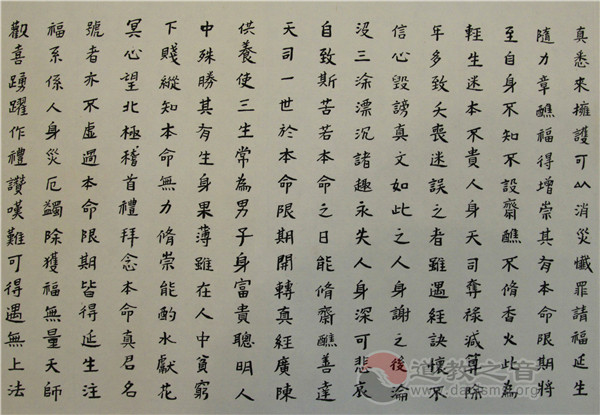 真悉來擁護可以消災懺罪請福延生
隨力章醮福得增崇其有本命限期將
至自身不知不設齋醮不脩香火此為
輕生迷本不貴人身天司奪祿减筭除
年多致夭喪迷誤之者雖遇經訣懷不
信心毀謗真文如此之人身謝之後淪
沒三塗漂沉諸趣永失人身深可悲哀
自致斯苦若本命之日能脩齋醮善達
天司一世於本命限期開轉真經廣陳
供養使三生常為男子身富貴聰明人
中殊勝其有生身果薄雖在人中貧窮
下賤縱知本命無力脩崇能酌水獻花
冥心望北極稽首禮拜念本命真君名
號者亦不虛過本命限期皆得延生注
福系係人身災厄蠲除獲福無量天師
歡喜踴躍作禮讚嘆難可得遇無上法
道教之音
www.daoisms.org